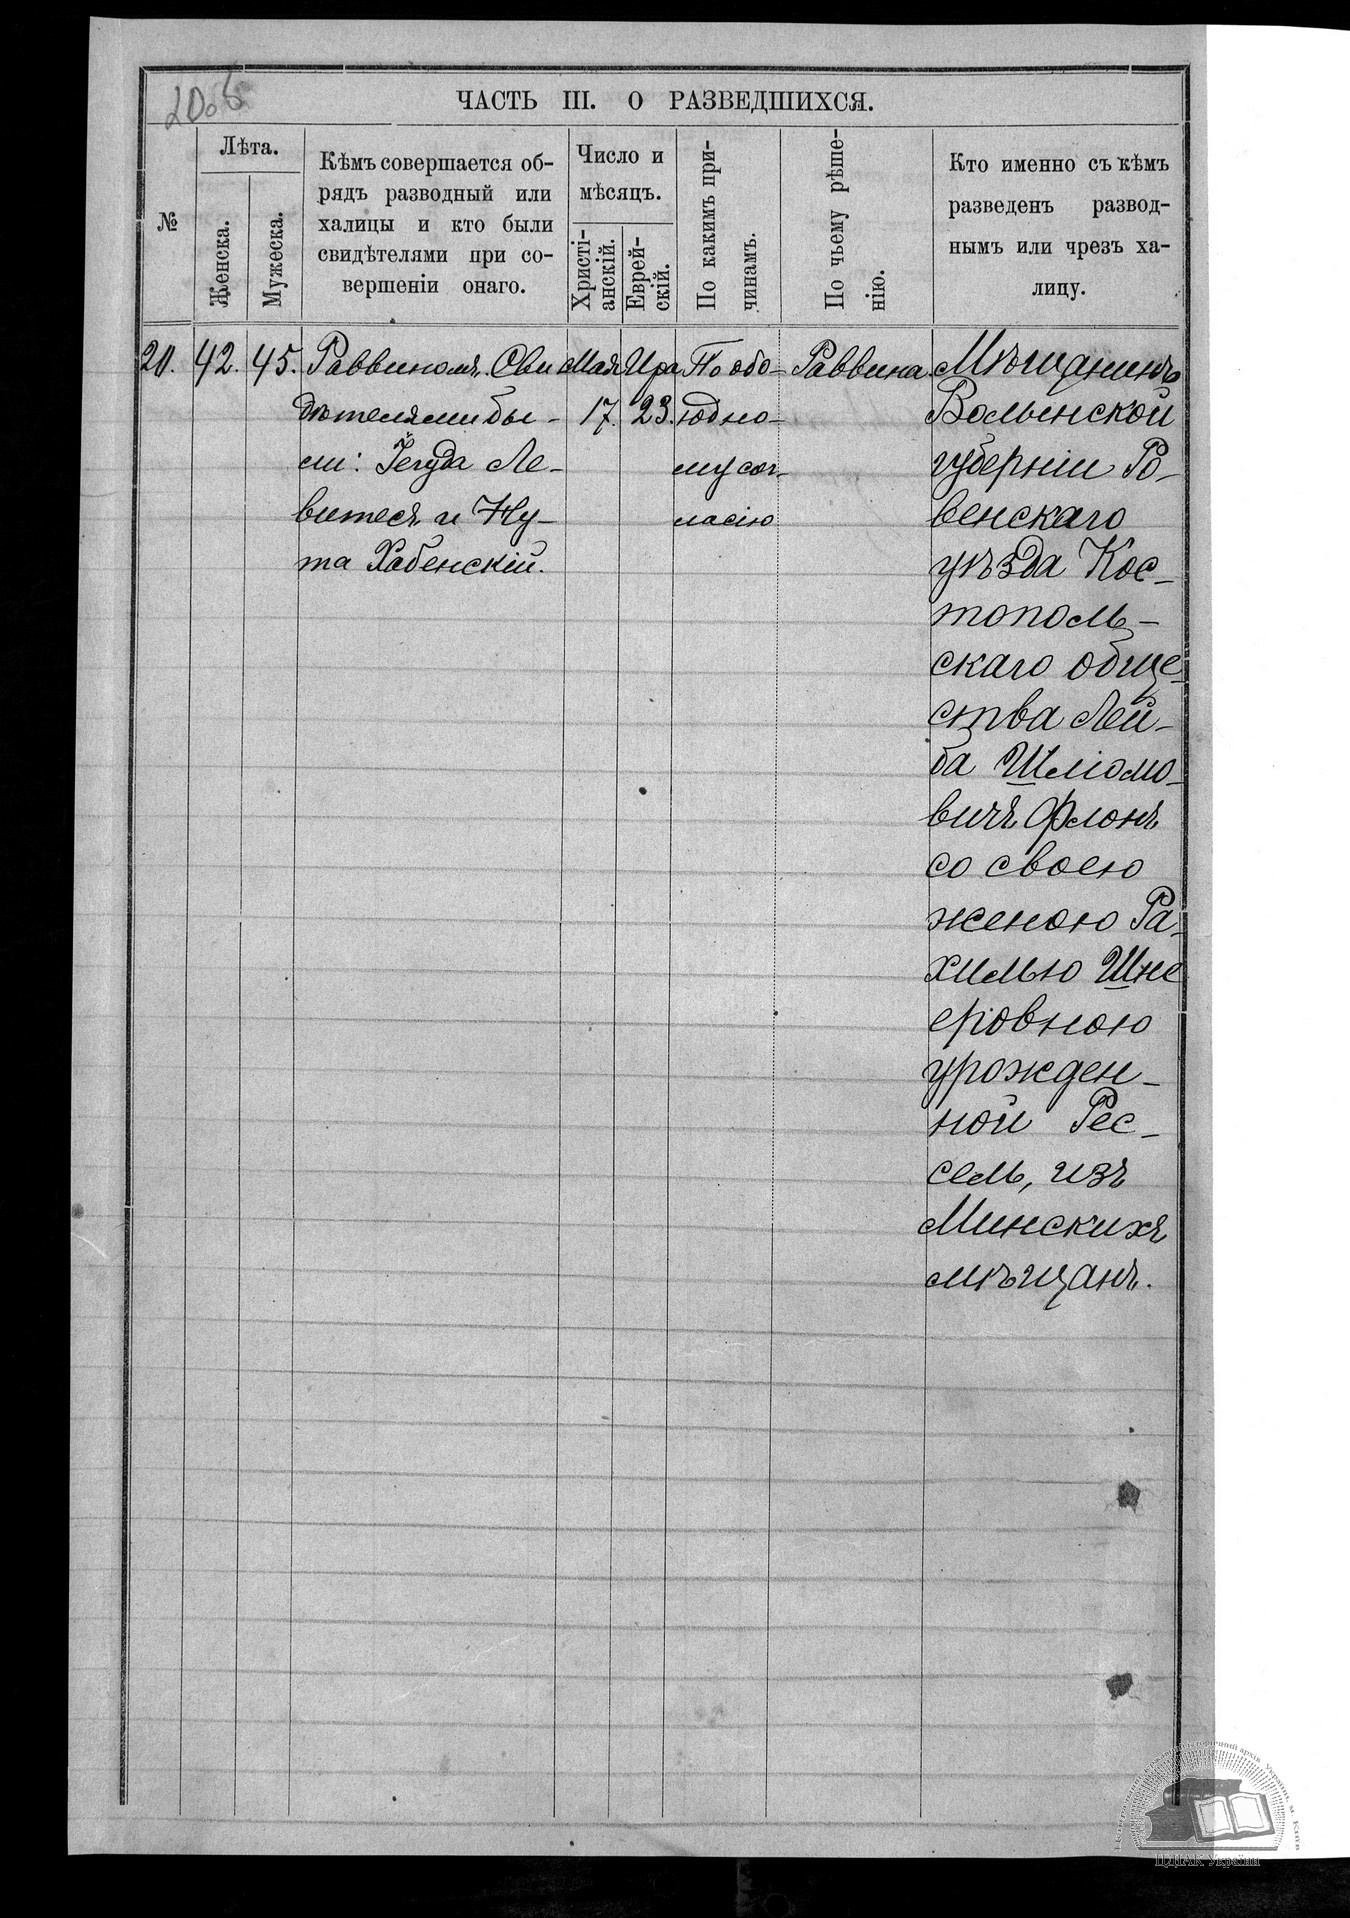 ЧАСТЬ III. О РАЗВЕДШИХСЯ.
№
Лѣта.
Женска.
Мужеска.
Кѣмъ совершается об-
рядъ разводный или
халицы и кто были
свидѣтелями при со-
вершеніи онаго.
Число и
мѣсяцъ.
Христі-
анскій.
Еврей-
скій.
По какимъ при-
чинамъ.
По чьему рѣше-
нію.
Кто именно съ кѣмъ
разведенъ развод-
нымъ или чрезъ ха-
лицу.
42.
45.
Раввиномъ. Сви
дѣтелями бы-
ли: Іегуда Ле-
витесъ и Ну-
та Хабенскій.
Мая
17.
Ира
23.
По обо-
юдно-
му сог-
ласію
Раввина.
Мѣщанинъ
Волынской
губерніи Ро-
венскаго
уѣзда Кос-
тополь-
скаго обще-
ства Лей-
ба Шліомо-
вичъ Флонъ
со своею
женою Ра-
хилью Шне
еровною
урожден-
ной Рес-
сель, изъ
Минскихъ
мѣщанъ.
ЦДІАК України